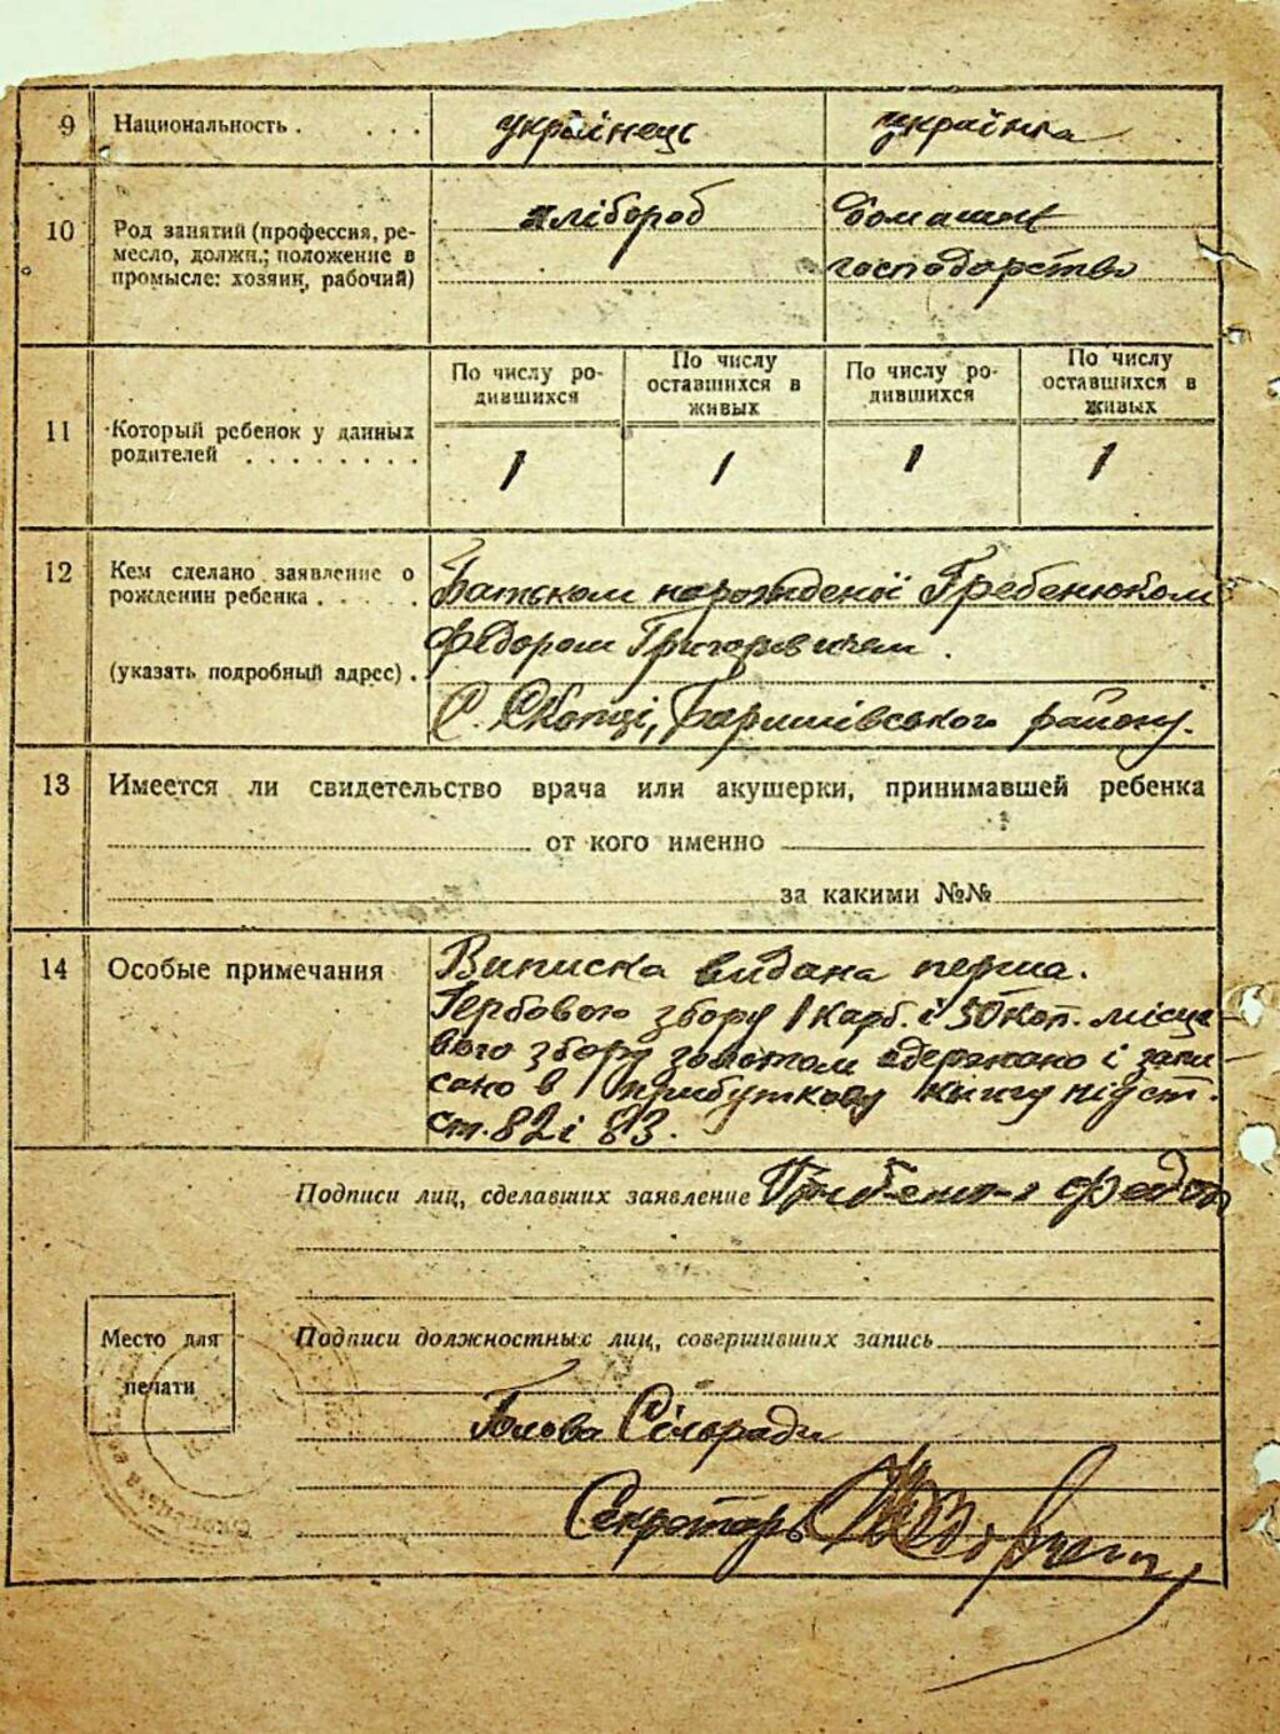 9 Национальность . . . . українець українка
10 Род занятий (профессия, ре-
месло, должн.; положение в
промысле: хозяин, рабочий)
хлібороб
домашнє
господарство
11 Который ребенок у данных
родителей . . . . . . . .
По числу ро-
дившихся
По числу
оставшихся в
живых
По числу ро-
дившихся
По числу
оставшихся в
живых
1 1 1 1
12 Кем сделано заявление о
рождении ребенка . . . . .
(указать подробный адрес) .
Батьком народженої Гребенюком
Федором Григоровичем.
С. Скопці, Баришівського району.
13 Имеется ли свидетельство врача или акушерки, принимавшей ребенка
от кого именно
за какими №№
14 Особые примечания
Виписка видана перша.
Гербового збору 1 карб. і 50 коп. місце-
вого збору золотом одержано і запи-
сано в прибуткову книгу під ст.
ст. 82 і 83.
Подписи лиц, сделавших заявление Федор
Место для
печати
Подписи должностных лиц, совершивших запись
Голова Сільради
Секретарь